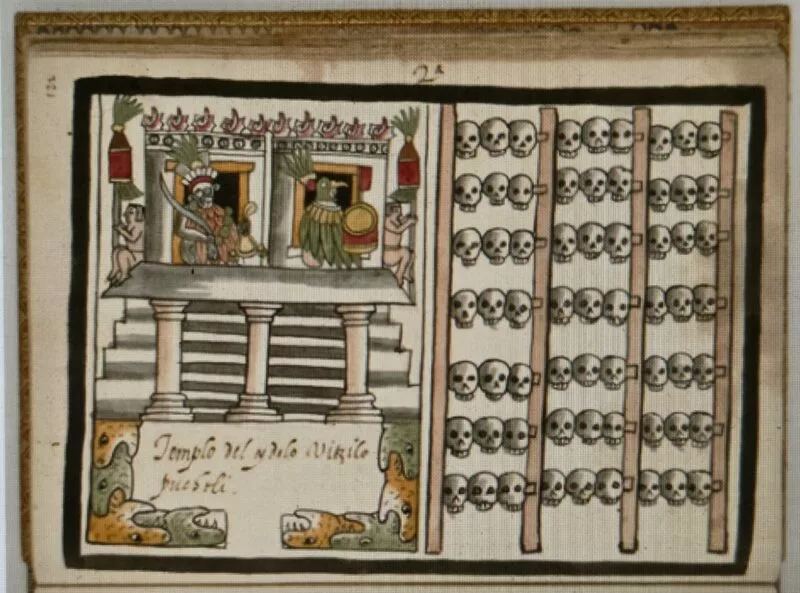 2ª
Templo del ydolo Vitzilo
puchtli.